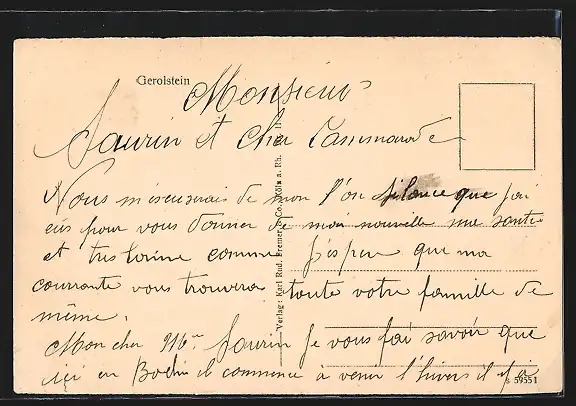 Gerolstein
Monsieur
Saurin et cher Cammarade
Nous m'escuserais de mon l'on silance que j'ai
eus pour vous donner de mais nouvelle ma santé
et tres bonne comme j'espere que ma
courrante vous trouverai toute votre famille de
même.
Mon cher Mr Saurin Je vous fai savoir que
içi en Boche il commence à venir l'hivers il y a
Verlag: Karl Rud. Bremer & Co., Köln a. Rh.
59551